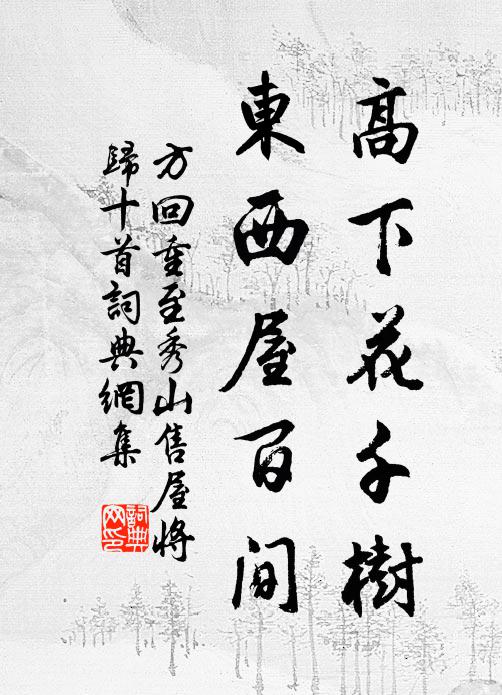 高下花千樹
東西屋百間
方回重至秀山售屋將
歸十首詞典網集
詞典
网